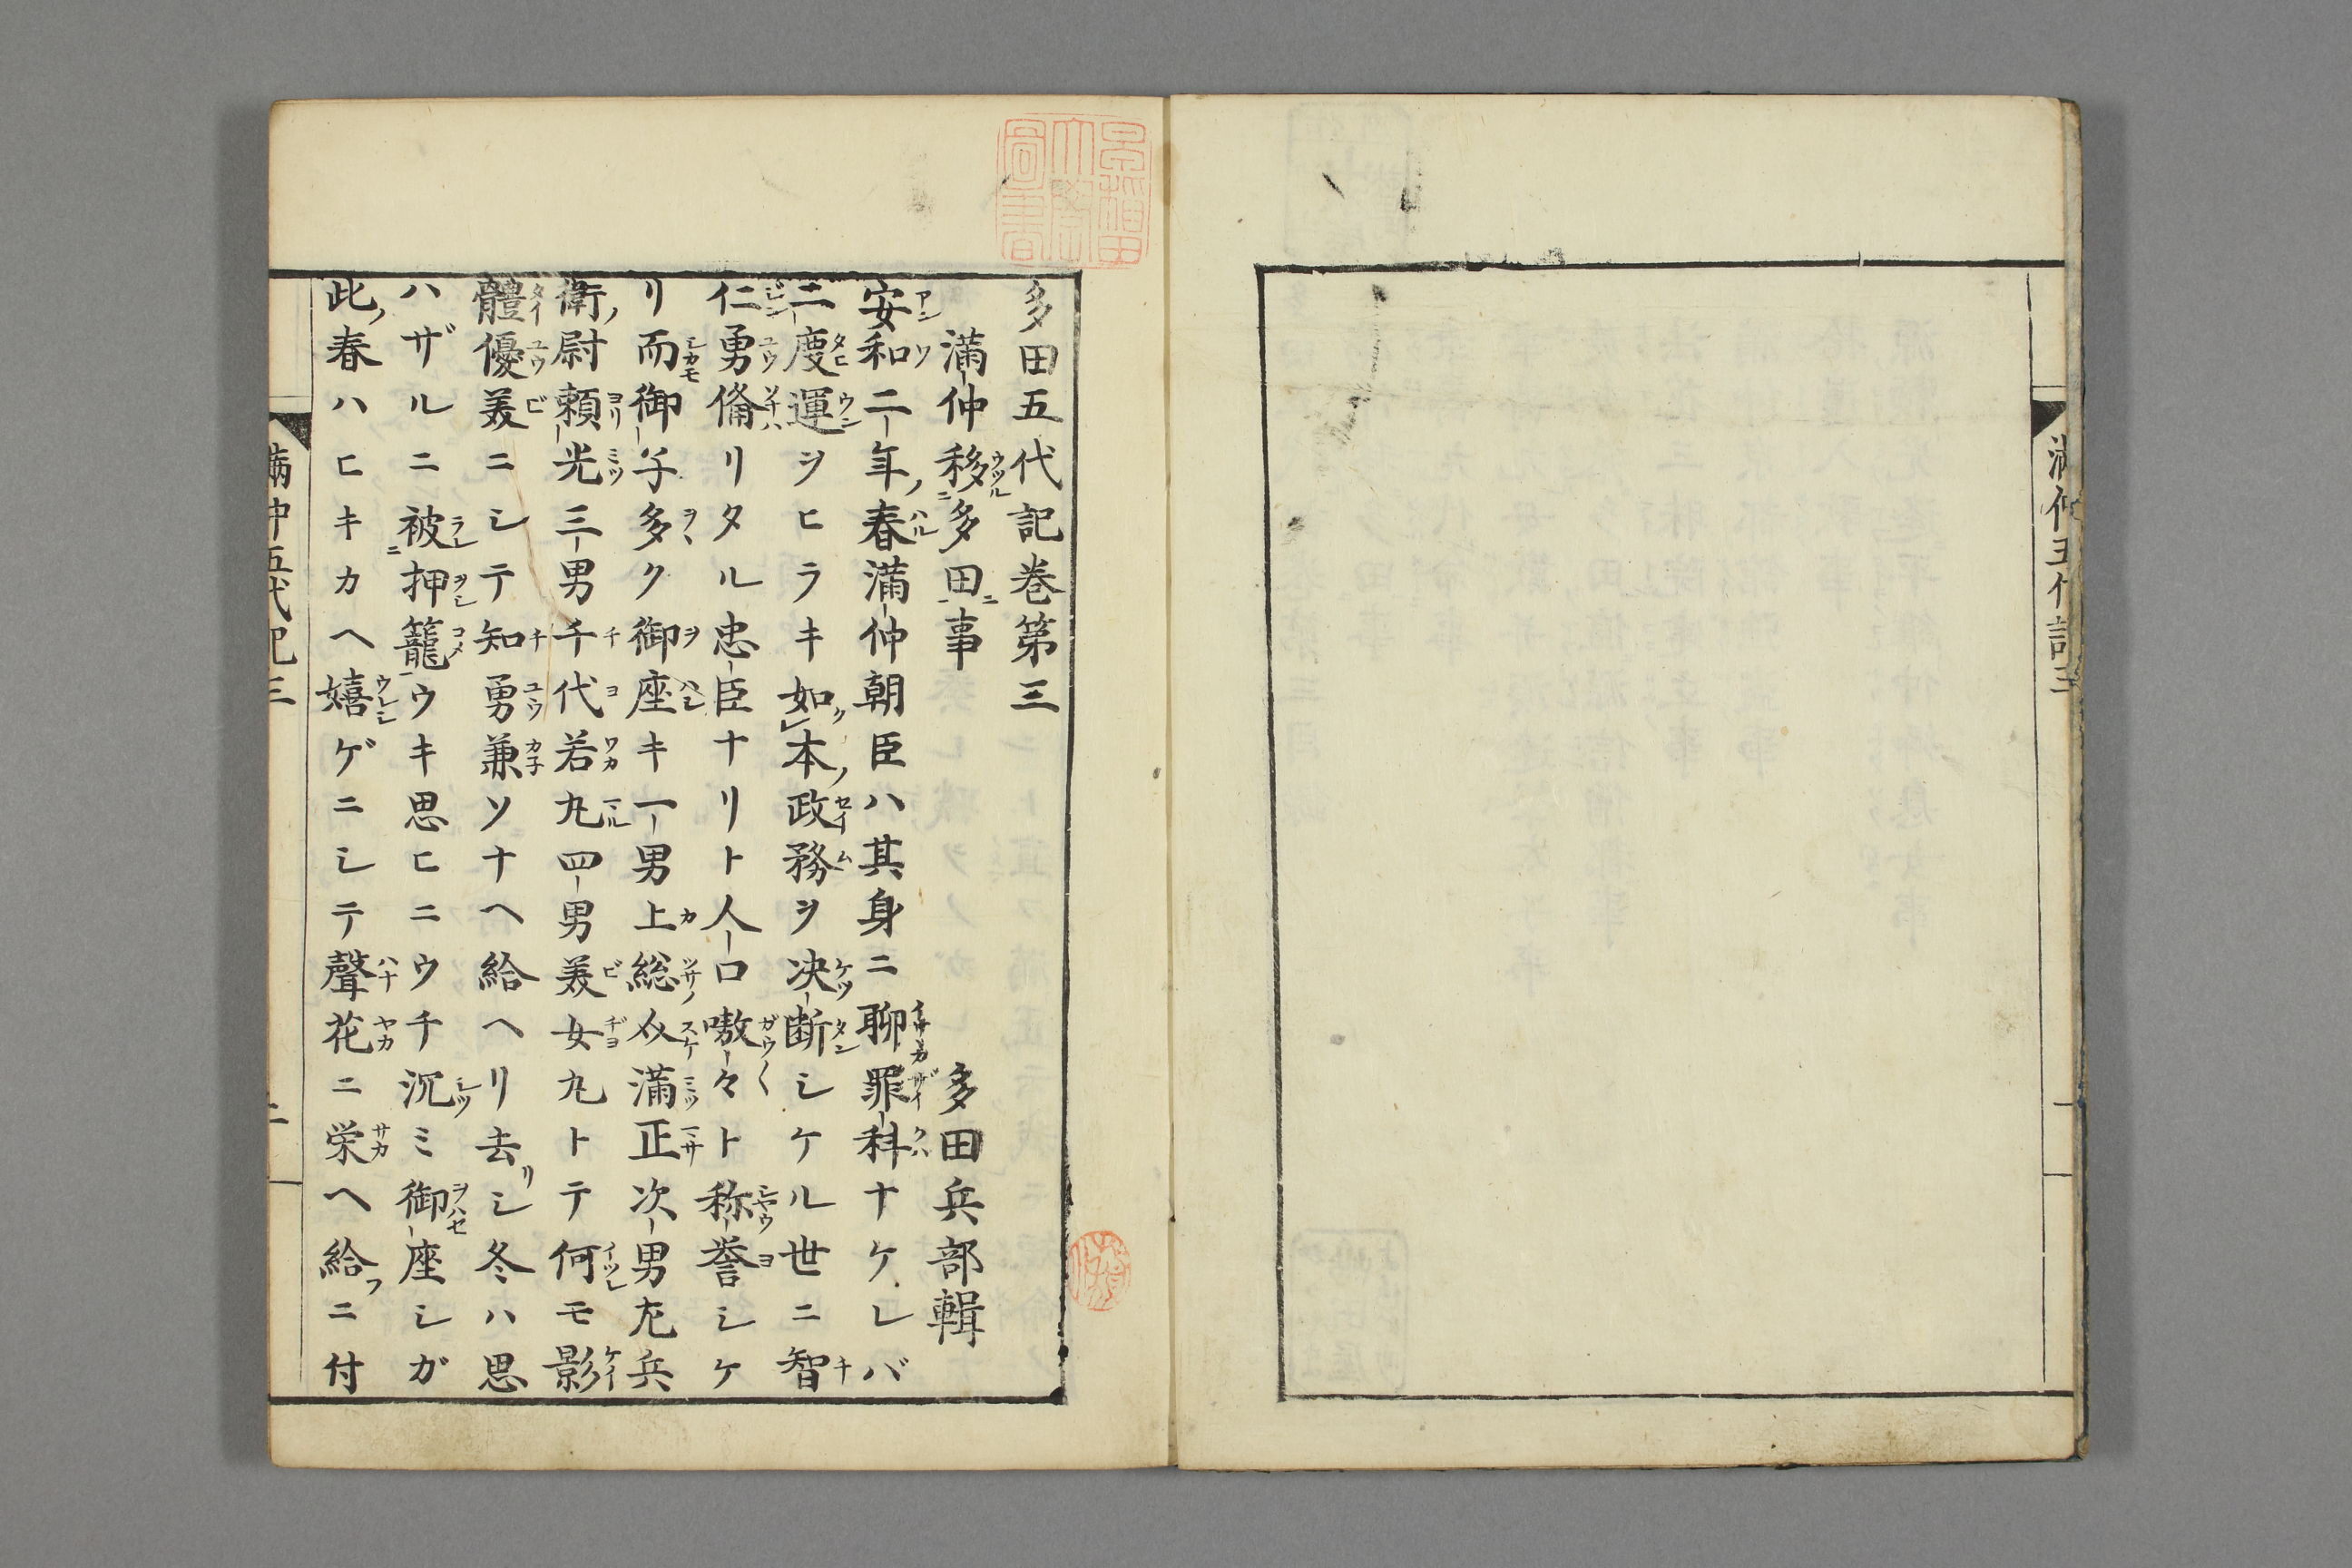 満仲五代記三
多田五代記巻第三
満仲移多田事　多田兵部輯
安和二年春満仲朝臣ハ其身ニ聊罪科ナケレバ
二度運ヲヒラキ如本政務ヲ决断シケル世ニ智
仁勇備リタル忠臣ナリト人口嗷々ト称誉シケ
リ而御子多ク御座キ一男上総介満正次男左兵
衛尉頼光三男千代若丸四男美女丸トテ何モ影
體優美ニシテ知勇兼ソナヘ給ヘリ去シ冬ハ思
ハザルニ被押籠ウキ思ヒニウチ沉ミ御座シガ
此春ハヒキカヘ嬉ゲニシテ聲花ニ栄ヘ給ニ付
満仲五代記三